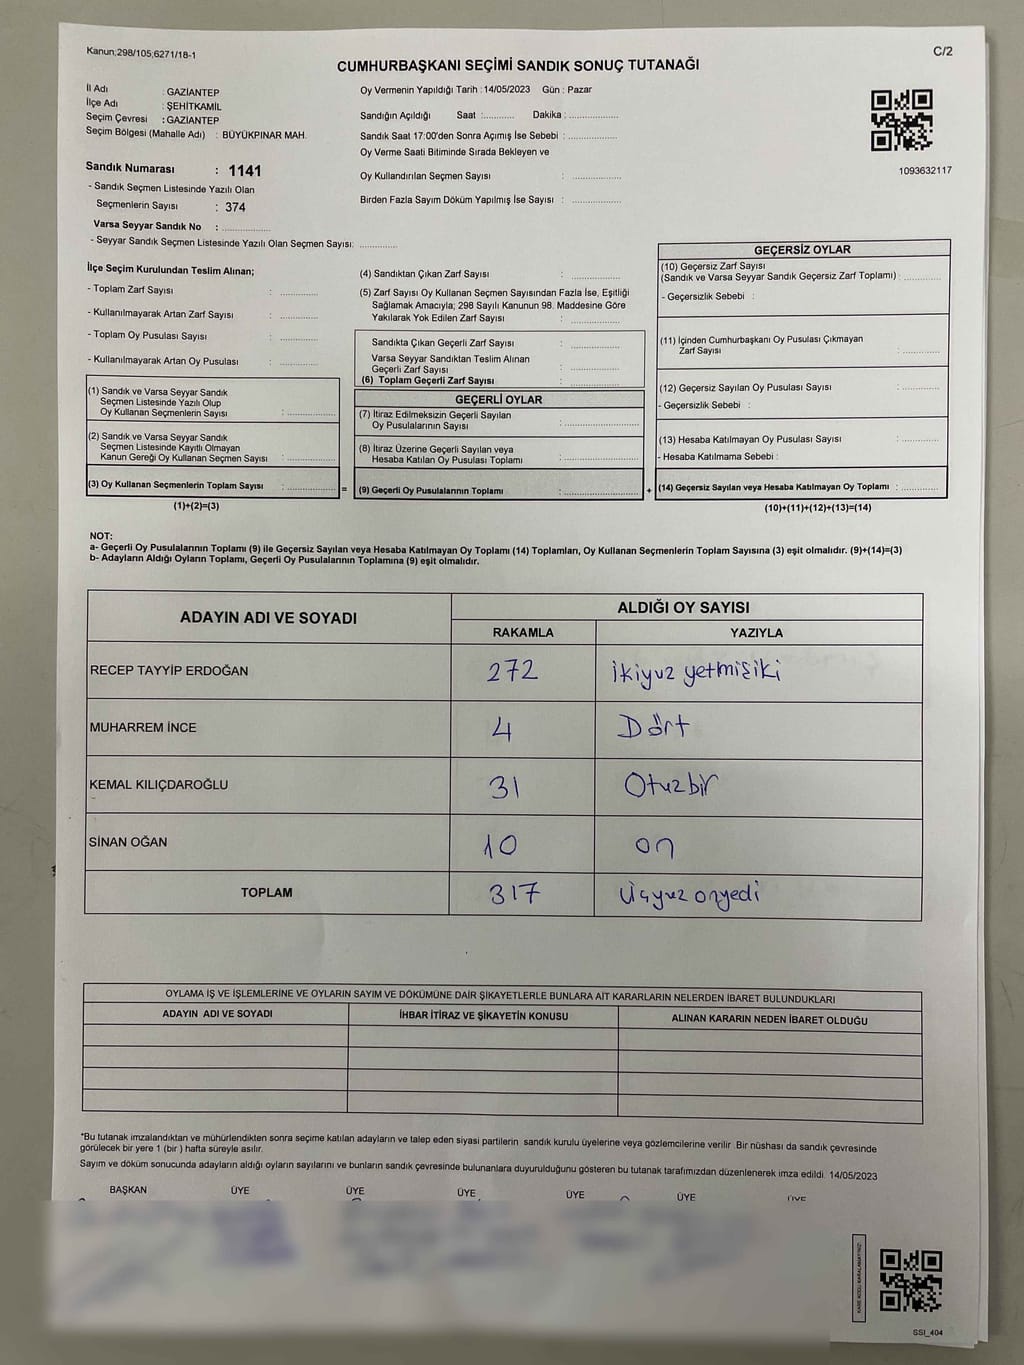 Kanun;298/105;6271/18-1
C/2
CUMHURBAŞKANI SEÇİMİ SANDIK SONUÇ TUTANAĞI
İl Adı : GAZİANTEP
İlçe Adı : ŞEHİTKAMİL
Seçim Çevresi : GAZİANTEP
Seçim Bölgesi (Mahalle Adı) : BÜYÜKPINAR MAH.
Sandık Numarası : 1141
- Sandık Seçmen Listesinde Yazılı Olan
Seçmenlerin Sayısı : 374
Varsa Seyyar Sandık No : ..................
- Seyyar Sandık Seçmen Listesinde Yazılı Olan Seçmen Sayısı: ..............
Oy Vermenin Yapıldığı Tarih : 14/05/2023 Gün : Pazar
Sandığın Açıldığı Saat :............ Dakika : ..................
Sandık Saat 17:00'den Sonra Açımış İse Sebebi : ..................
Oy Verme Saati Bitiminde Sırada Bekleyen ve
Oy Kullandırılan Seçmen Sayısı : ..................
Birden Fazla Sayım Döküm Yapılmış İse Sayısı : ..................
1093632117
İlçe Seçim Kurulundan Teslim Alınan;
- Toplam Zarf Sayısı : ..............
- Kullanılmayarak Artan Zarf Sayısı : ..............
- Toplam Oy Pusulası Sayısı : ..............
- Kullanılmayarak Artan Oy Pusulası : ..............
(1) Sandık ve Varsa Seyyar Sandık
Seçmen Listesinde Yazılı Olup
Oy Kullanan Seçmenlerin Sayısı : ..................
(2) Sandık ve Varsa Seyyar Sandık
Seçmen Listesinde Kayıtlı Olmayan
Kanun Gereği Oy Kullanan Seçmen Sayısı : ..................
(3) Oy Kullanan Seçmenlerin Toplam Sayısı : ..................
(1)+(2)=(3)
=
(4) Sandıktan Çıkan Zarf Sayısı : ..................
(5) Zarf Sayısı Oy Kullanan Seçmen Sayısından Fazla İse, Eşitliği
Sağlamak Amacıyla; 298 Sayılı Kanunun 98. Maddesine Göre
Yakılarak Yok Edilen Zarf Sayısı : ..................
Sandıkta Çıkan Geçerli Zarf Sayısı : ..................
Varsa Seyyar Sandıktan Teslim Alınan
Geçerli Zarf Sayısı : ..................
(6) Toplam Geçerli Zarf Sayısı : ..................
GEÇERLİ OYLAR
(7) İtiraz Edilmeksizin Geçerli Sayılan
Oy Pusulalarının Sayısı : ..................
(8) İtiraz Üzerine Geçerli Sayılan veya
Hesaba Katılan Oy Pusulası Toplamı : ..................
(9) Geçerli Oy Pusulalarının Toplamı : ..................
+
GEÇERSİZ OYLAR
(10) Geçersiz Zarf Sayısı
(Sandık ve Varsa Seyyar Sandık Geçersiz Zarf Toplamı) : ..............
- Geçersizlik Sebebi :
(11) İçinden Cumhurbaşkanı Oy Pusulası Çıkmayan
Zarf Sayısı : ..............
(12) Geçersiz Sayılan Oy Pusulası Sayısı : ..............
- Geçersizlik Sebebi :
(13) Hesaba Katılmayan Oy Pusulası Sayısı : ..............
- Hesaba Katılmama Sebebi :
(14) Geçersiz Sayılan veya Hesaba Katılmayan Oy Toplamı : ..............
(10)+(11)+(12)+(13)=(14)
NOT:
a- Geçerli Oy Pusulalarının Toplamı (9) ile Geçersiz Sayılan veya Hesaba Katılmayan Oy Toplamı (14) Toplamları, Oy Kullanan Seçmenlerin Toplam Sayısına (3) eşit olmalıdır. (9)+(14)=(3)
b- Adayların Aldığı Oyların Toplamı, Geçerli Oy Pusulalarının Toplamına (9) eşit olmalıdır.
ADAYIN ADI VE SOYADI ALDIĞI OY SAYISI
RAKAMLA YAZIYLA
RECEP TAYYİP ERDOĞAN 272 İkiyuz yetmişiki
MUHARREM İNCE 4 Dört
KEMAL KILIÇDAROĞLU 31 Otuzbir
SİNAN OĞAN 10 on
TOPLAM 317 Üçyuz onyedi
OYLAMA İŞ VE İŞLEMLERİNE VE OYLARIN SAYIM VE DÖKÜMÜNE DAİR ŞİKAYETLERLE BUNLARA AİT KARARLARIN NELERDEN İBARET BULUNDUKLARI
ADAYIN ADI VE SOYADI İHBAR İTİRAZ VE ŞİKAYETİN KONUSU ALINAN KARARIN NEDEN İBARET OLDUĞU
*Bu tutanak imzalandıktan ve mühürlendikten sonra seçime katılan adayların ve talep eden siyasi partilerin sandık kurulu üyelerine veya gözlemcilerine verilir Bir nüshası da sandık çevresinde
görülecek bir yere 1 (bir ) hafta süreyle asılır.
Sayım ve döküm sonucunda adayların aldığı oyların sayılarını ve bunların sandık çevresinde bulunanlara duyurulduğunu gösteren bu tutanak tarafımızdan düzenlenerek imza edildi. 14/05/2023
BAŞKAN ÜYE ÜYE ÜYE ÜYE ÜYE ÜYE
KARE KODU KARALAMAYINIZ!
SSI_404